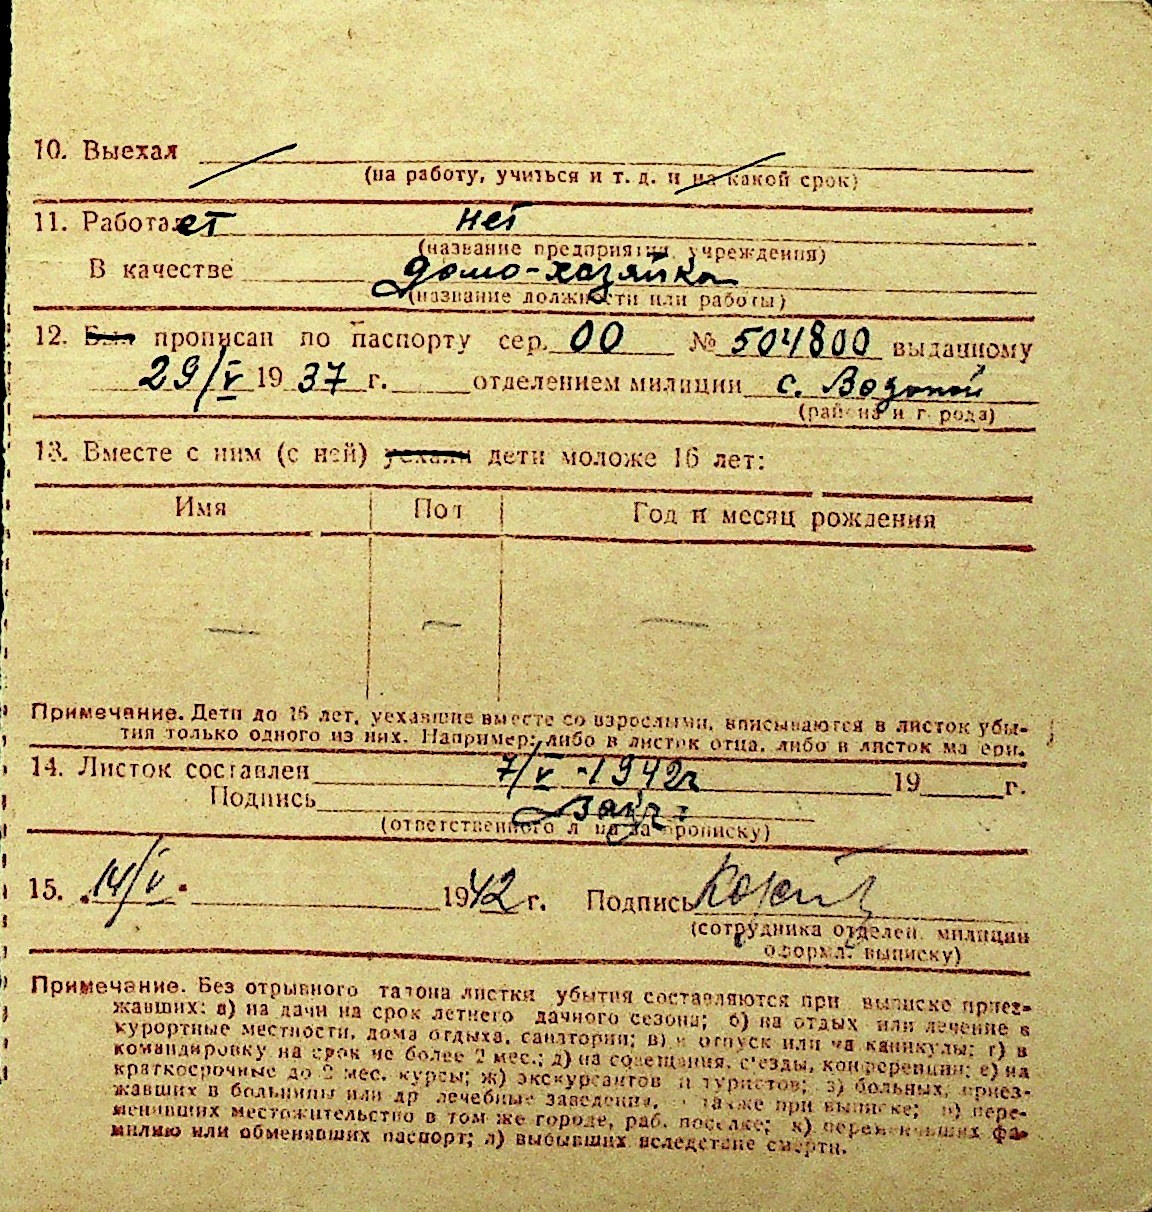 10. Выехал
(на работу, учиться и т. д. и на какой срок)
11. Работает нет
(название предприятия, учреждения)
В качестве домо-хозяйка
(название должности или работы)
12. Был прописан по паспорту сер. 00 № 504800 выданному
29/V 1937 г. отделением милиции с. Водопой
(района и города)
13. Вместе с ним (с ней) уехали дети моложе 16 лет:
Имя Пол Год и месяц рождения
— — —
Примечание. Дети до 16 лет, уехавшие вместе со взрослыми, вписываются в листок убы-
тия только одного из них. Например: либо в листок отца, либо в листок матери.
14. Листок составлен 7/V-1942г 19 г.
Подпись
(ответственного лица за прописку)
15. 14/V. 1942 г. Подпись
(сотрудника отделен. милиции
оформл. выписку)
Примечание. Без отрывного талона листки убытия составляются при выписке приез-
жавших: а) на дачи на срок летнего дачного сезона; б) на отдых или лечение в
курортные местности, дома отдыха, санатории; в) в отпуск или на каникулы; г) в
командировку на срок не более 2 мес.; д) на совещания, съезды, конференции; е) на
краткосрочные до 2 мес. курсы; ж) экскурсантов и туристов; з) больных, приез-
жавших в больницы или др лечебные заведения, а также при выписке; и) пере-
менивших местожительство в том же городе, раб. поселке; к) переменивших фа-
милию или обменявших паспорт; л) выбывших вследствие смерти.